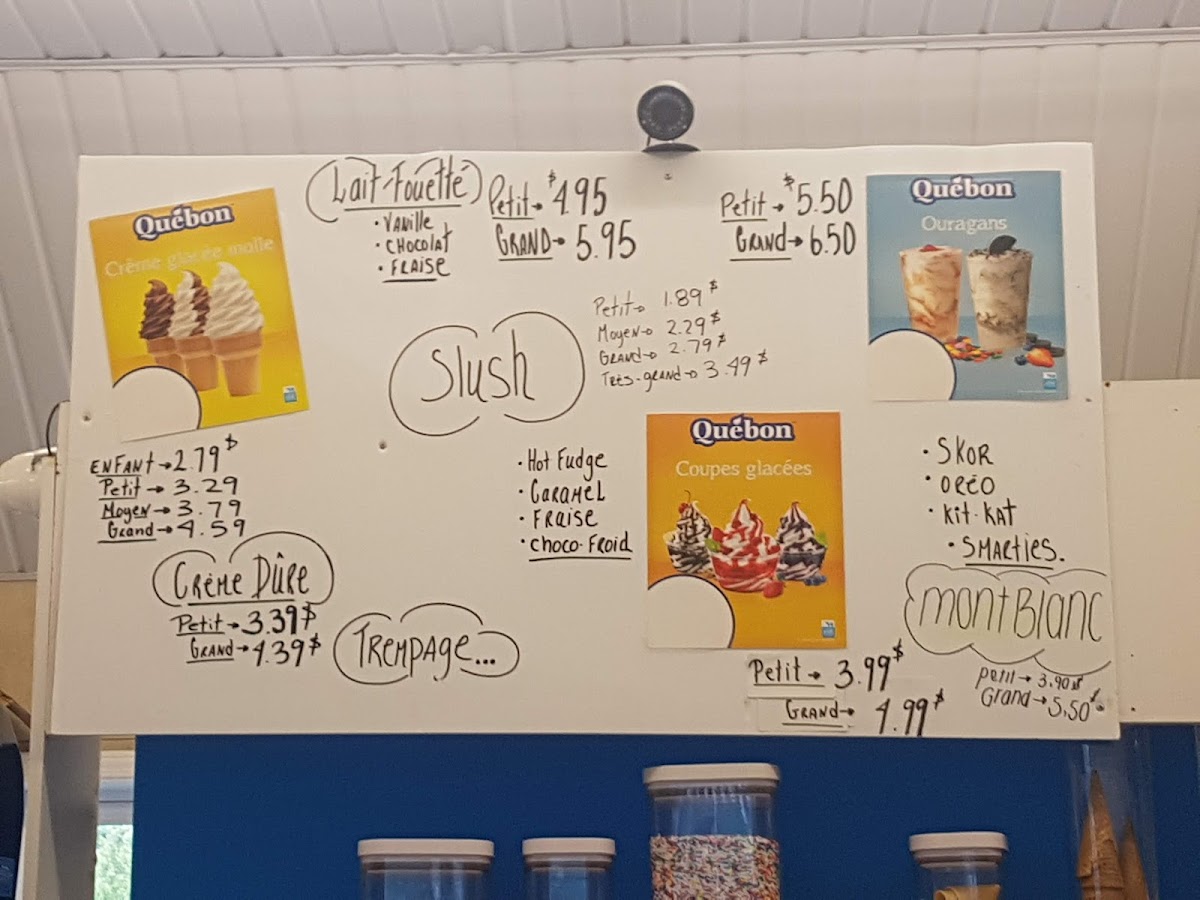 Québon
Crème glacée molle
ENFANT → 2.79$
Petit → 3.29
Moyen → 3.79
Grand → 4.59
CRÈME DÛRE
Petit → 3.39$
GRAND → 4.39$
Lait-Fouetté
• VANille
• CHOCOLAT
• FRAISE
Petit → $4.95
GRAND → 5.95
Slush
Petit → 1.89$
Moyen → 2.29$
GRAND → 2.79$
Très-grand → 3.49$
TREMPAGE...
• Hot Fudge
• CARAMEL
• FRAISE
• CHOCO-FROID
Québon
Coupes glacées
Petit → 3.99$
GRAND → 4.99$
Petit → $5.50
GRAND → 6.50
Québon
Ouragans
• SKOR
• ORÉO
• Kit-Kat
• SMARTIES.
mont Blanc
petit → 3.90$
Grand → 5,50$